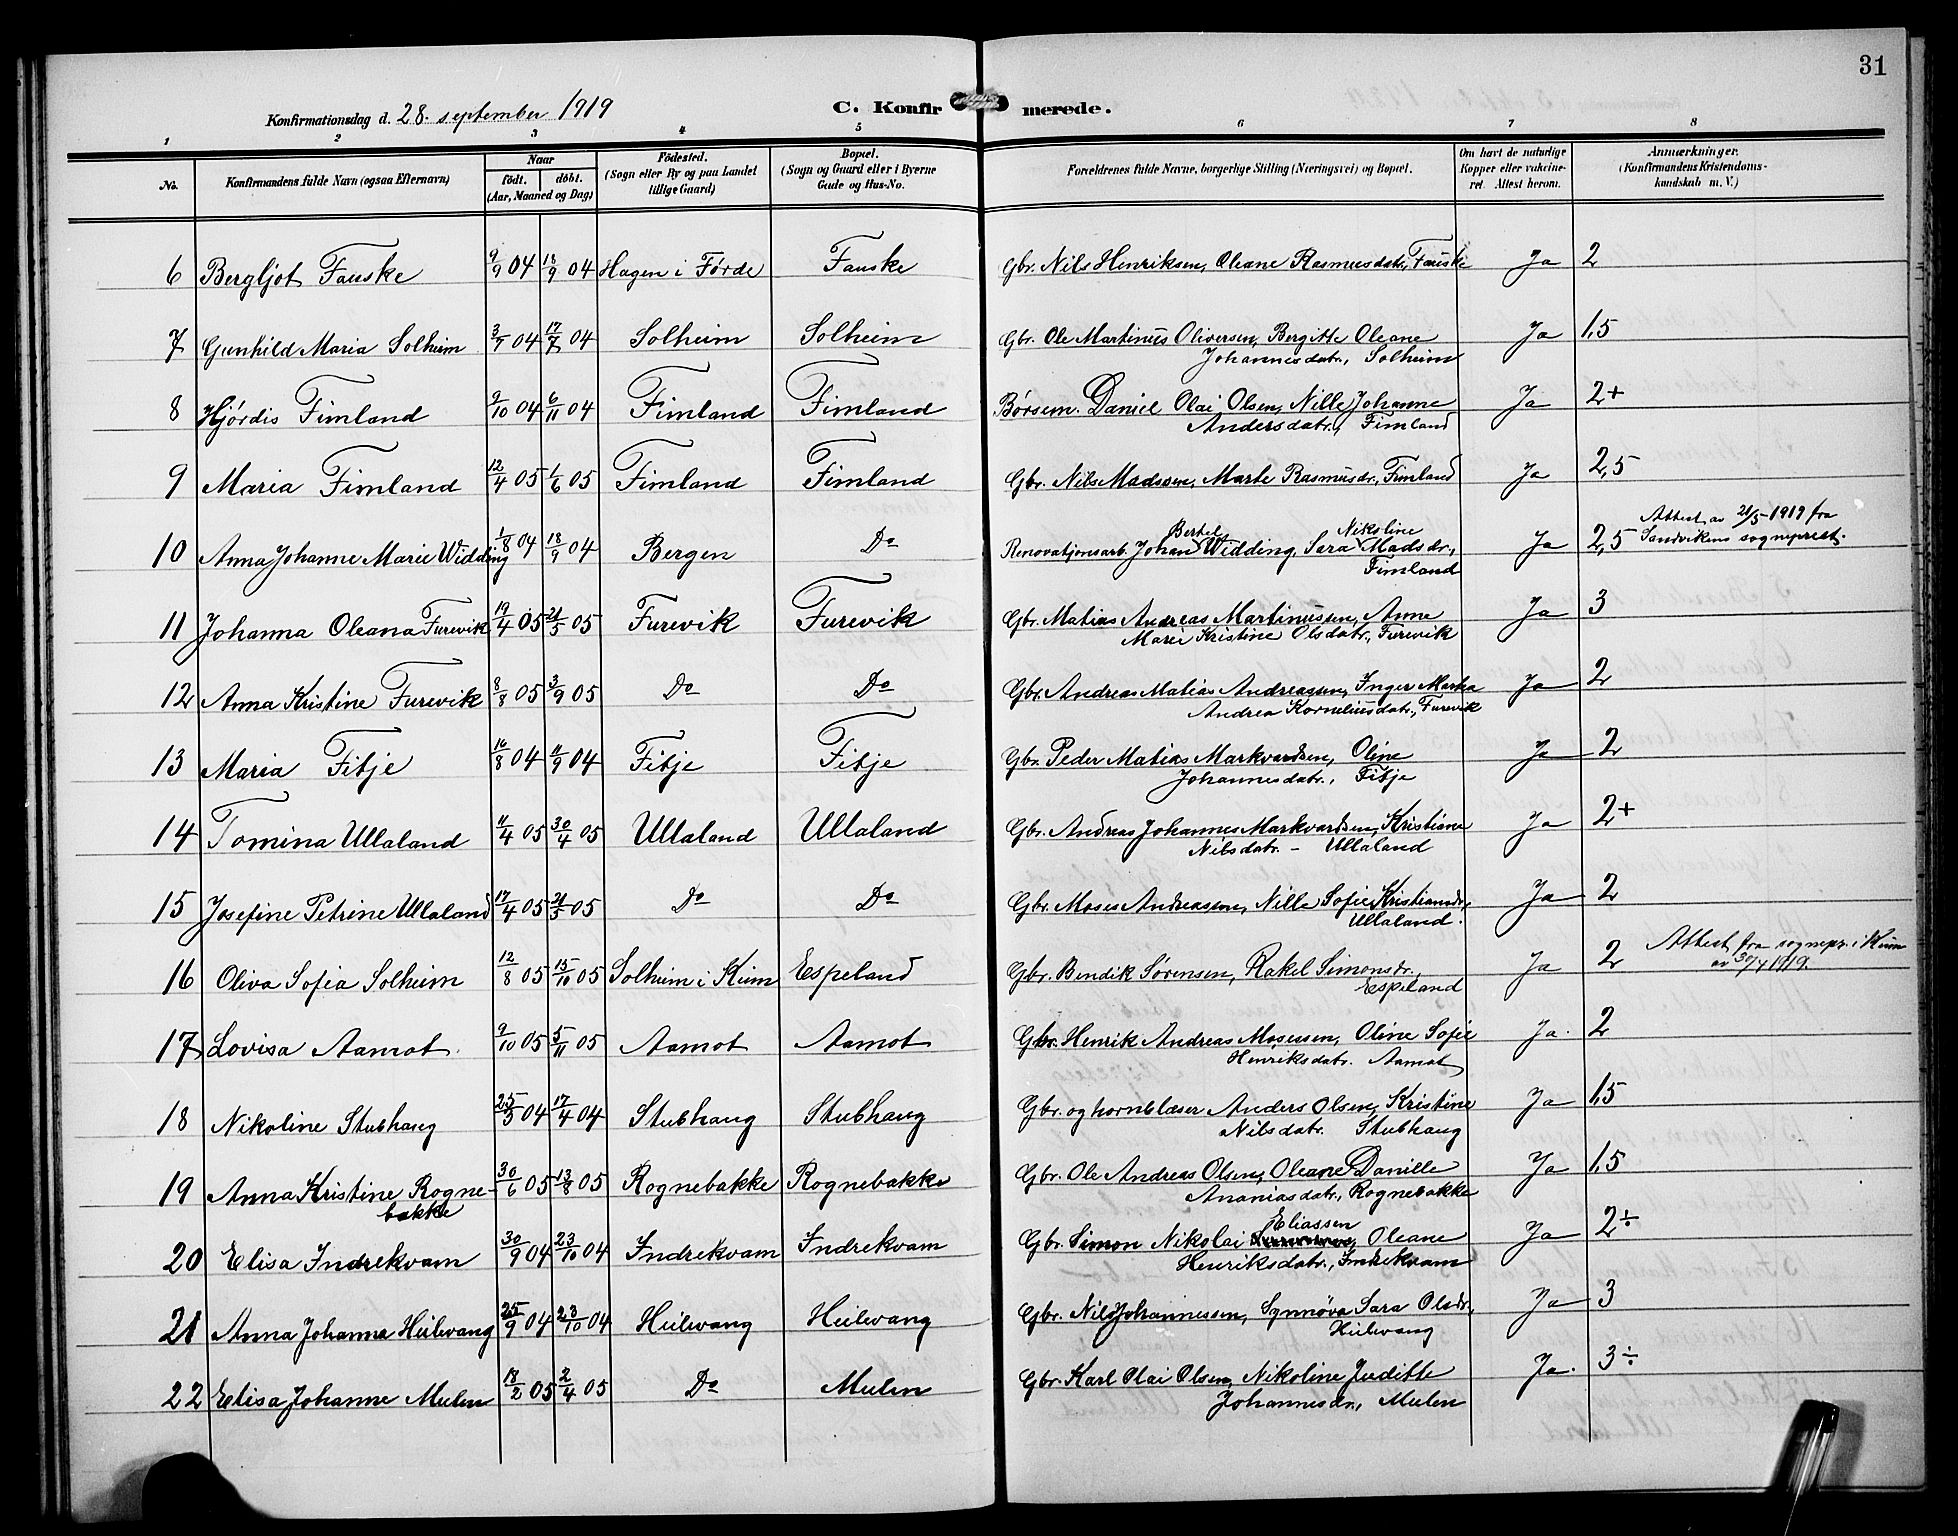 31
Konfirmationsdag d. 28. september 1919
C. Konfirmerede.
1 2 3 4 5 6 7 8
No. Konfirmandens fulde Navn (ogsaa Efternavn) Naar født. døbt. (Aar, Maaned og Dag) Fødested. (Sogn eller By og paa Landet tillige Gaard) Bopæl. (Sogn og Gaard eller i Byerne Gade og Hus-No. Forældrenes fulde Navne, borgerlige Stilling (Næringsvei) og Bopæl. Om havt de naturlige Kopper eller vaccineret. Attest herom. Anmærkninger. (Konfirmandens Kristendomskundskab m. V.)
6 Bergljot Fauske 9/9 04 18/9 04 Hagen i Førde Fauske Gbr. Nils Henriksen, Oleane Rasmusdatr., Fauske Ja 2
7 Gunhild Maria Solheim 3/7 04 17/7 04 Solheim Solheim Gbr. Ole Martinus Oliversen, Bergitte Oleane Ja 1,5
Johannesdatr., Solheim
8 Hjørdis Fimland 9/10 04 6/11 04 Fimland Fimland Børsem. Daniel Olai Olsen, Nille Johanne Ja 2+
Andersdatr., Fimland
9 Maria Fimland 12/4 05 1/6 05 Fimland Fimland Gbr. Nils Madssen, Marte Rasmusdr., Fimland Ja 2,5
10 Anna Johanne Marie Widding 1/8 04 18/9 04 Bergen Do Renovatjonsarb. Johan Bertel Widding, Sara Nikoline Madsdr., Ja 2,5 Attest av 21/5-1919 fra
Fimland Sandvikens sogneprest.
11 Johanna Oleana Furevik 19/4 05 21/5 05 Furevik Furevik Gbr. Matias Andreas Martinussen, Anne Ja 3
Marie Kristine Olsdatr., Furevik
12 Anna Kristine Furevik 8/8 05 3/9 05 Do Do Gbr. Andreas Matias Andreassen, Inger Marta Ja 2
Andrea Korneliusdatr., Furevik
13 Maria Fitje 16/8 04 11/9 04 Fitje Fitje Gbr. Peder Matias Markvardsen, Oline Ja 2
Johannesdatr., Fitje
14 Tomina Ullaland 11/4 05 30/4 05 Ullaland Ullaland Gbr. Andreas Johannes Markvardsen, Kristiane Ja 2+
Nilsdatr. - Ullaland
15 Josefine Petrine Ullaland 17/4 05 21/5 05 Do Do Gbr. Moses Andreassen, Nille Sofie Kristiansdr, Ja 2
Ullaland.
16 Oliva Sofia Solheim 12/8 05 15/10 05 Solheim i Kinn Espeland Gbr. Bendik Sørensen, Rakel Simonsdr., Ja 2 Attest fra sognepr. i Kinn
Espeland av 30/4 1919.
17 Lovisa Aamot. 9/10 05 5/11 05 Aamot Aamot Gbr. Henrik Andreas Mosessen, Oline Sofie Ja. 2
Henriksdatr. Aamot
18 Nikoline Stubhaug 25/3 04 17/4 04 Stubhaug Stubhaug Gbr. og hornblæser Anders Olsen, Kristine Ja 1,5
Nilsdatr. Stubhaug
19 Anna Kristine Rogne- 30/6 05 13/8 05 Rognebakke Rognebakke Gbr. Ole Andreas Olsen, Oleane Danille Ja 1,5
bakke Ananiasdatr., Rognebakke
20 Elisa Indrekvam 30/9 04 23/10 04 Indrekvam Indrekvam Gbr. Simon Nikolai Eliassen Oleane Ja 2÷
Henriksdatr., Indrekvam
21 Anna Johanna Heilevang 25/9 04 23/10 04 Heilevang Heilevang Gbr. Nils Johannessen, Synnøva Sara Olsdr., Ja 3
Heilevang
22 Elisa Johanne Mulen 18/2 05 2/4 05 Do Mulen Gbr. Karl Olai Olsen, Nikoline Juditte Ja. 3÷
Johannesdr., Mulen